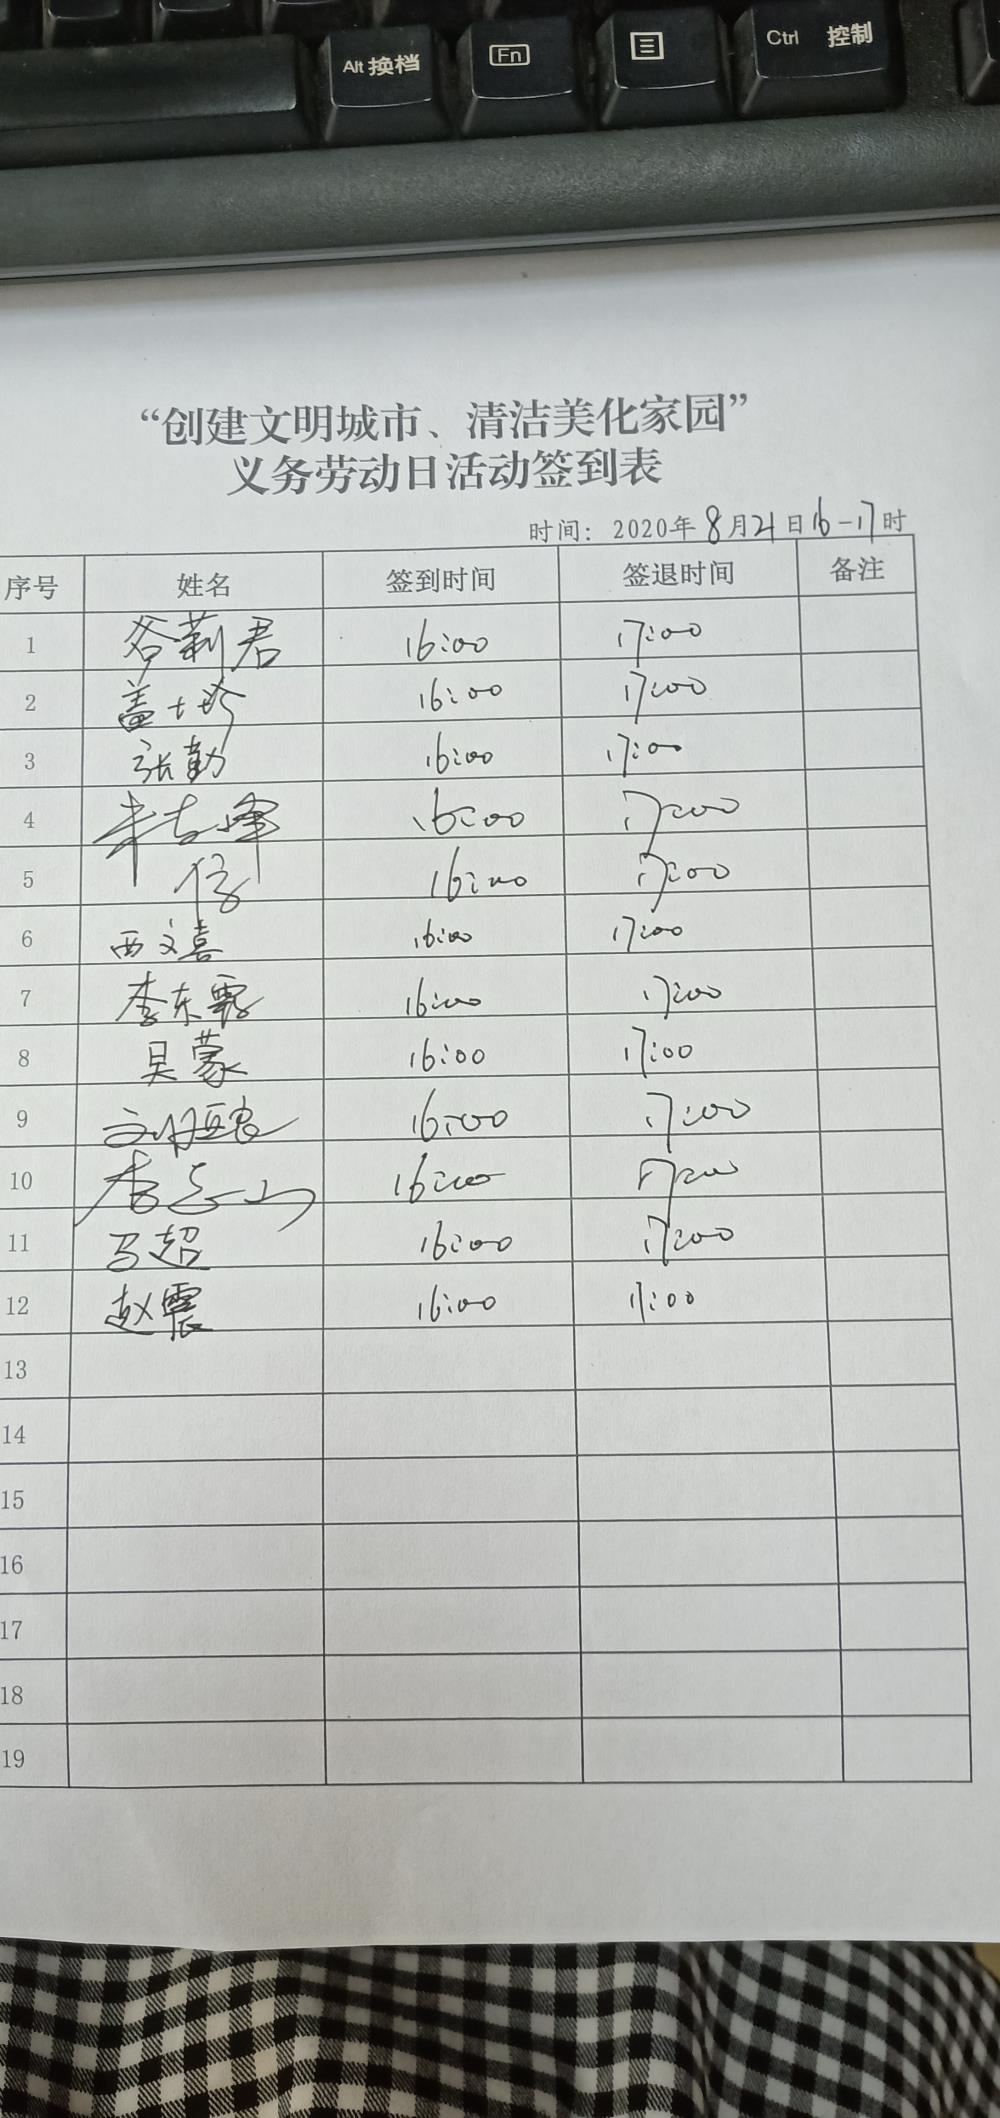 Alt 换档 Fn Ctrl 控制
“创建文明城市、清洁美化家园”
义务劳动日活动签到表
时间：2020年8月21日16-17时
序号 姓名 签到时间 签退时间 备注
1 谷莉君 16:00 17:00
2 盖 16:00 17:00
3 张勤 16:00 17:00
4 16:00 17:00
5 16:00 17:00
6 西文喜 16:00 17:00
7 李东霖 16:00 17:00
8 吴蒙 16:00 17:00
9 16:00 17:00
10 16:00 17:00
11 马超 16:00 17:00
12 赵震 16:00 17:00
13
14
15
16
17
18
19